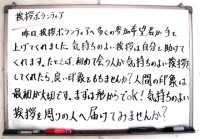 挨拶ボランティア
昨日、挨拶ボランティアへ多くの参加希望者が手を
上げてくれました。気持ちのよい挨拶は自分を助けて
くれます。たとえば、初めて会う人が気持ちのよい挨拶を
してくれたら、良い印象をもちませんか？人間の印象は
最初が大切です。まずは形からでOK！気持ちのよい
挨拶を周りの人へ届けてみませんか？